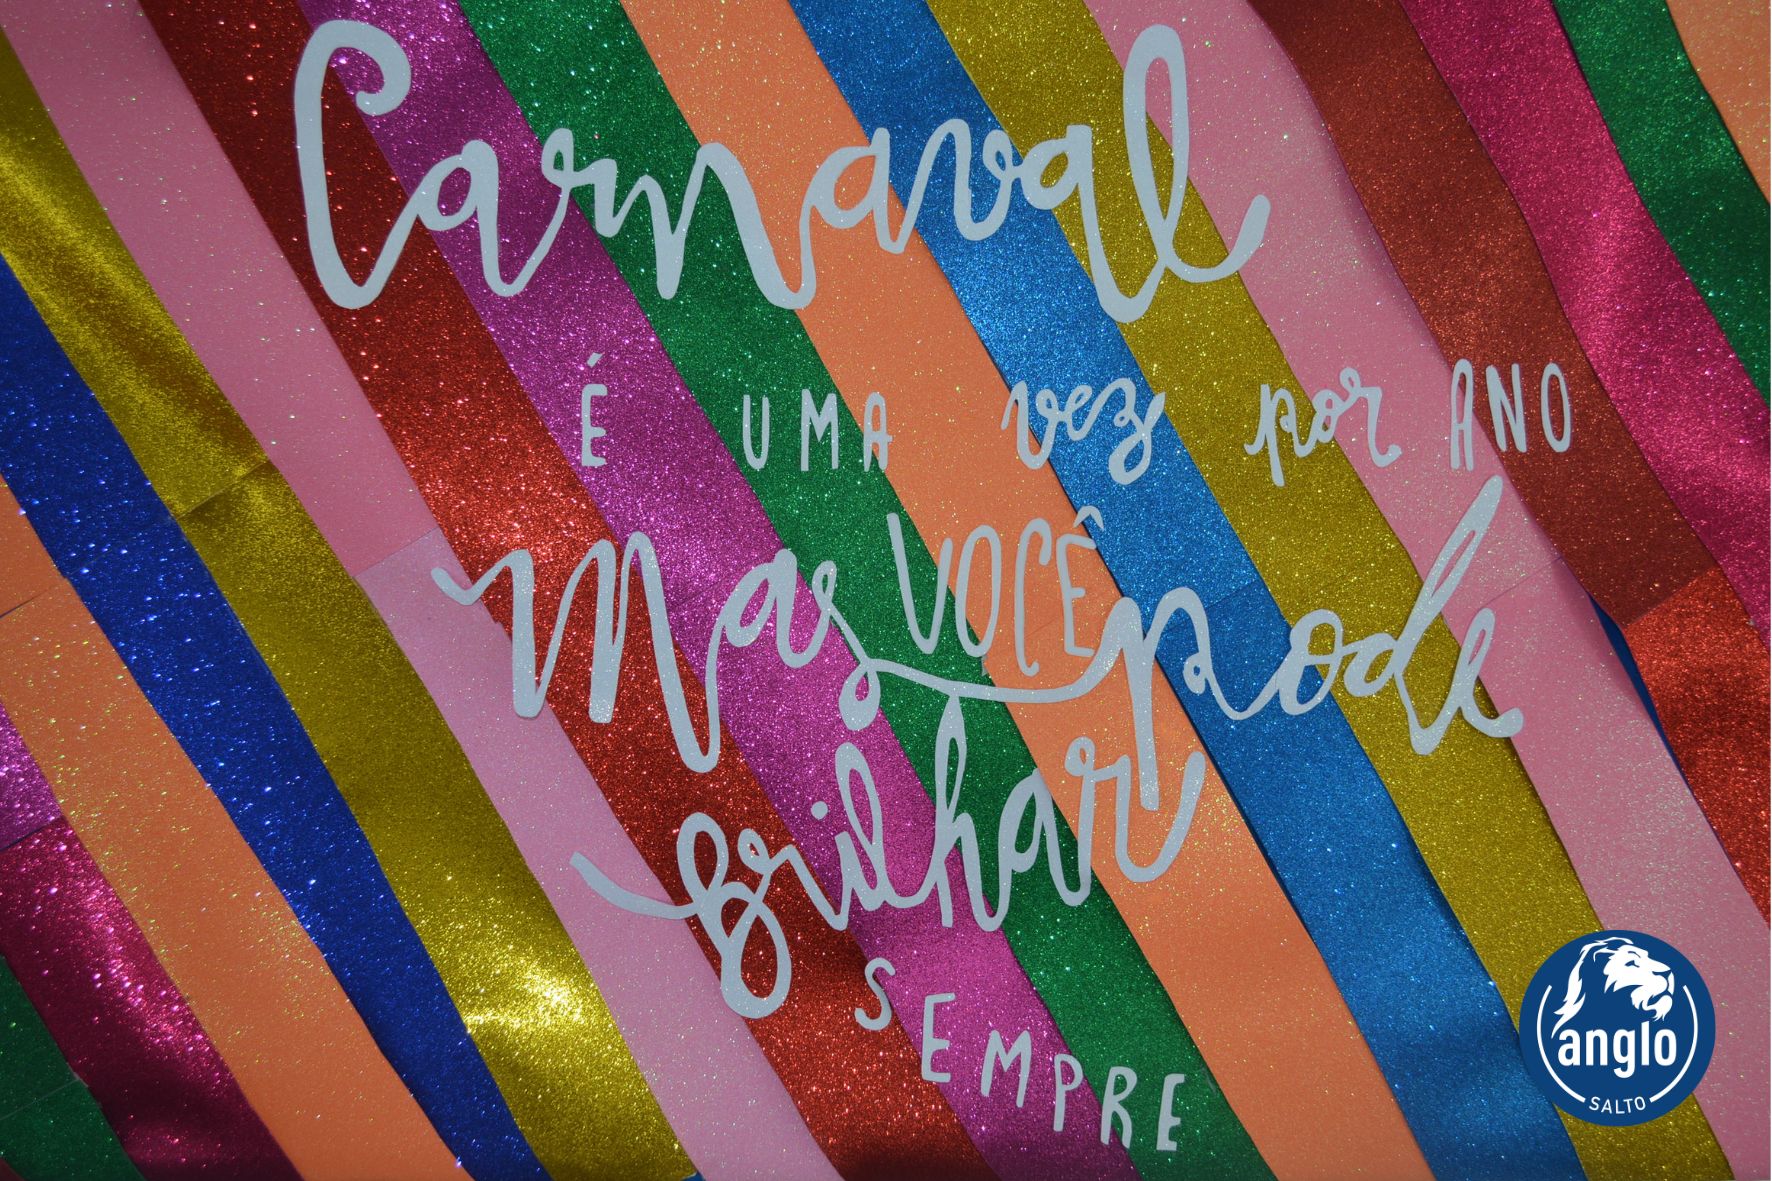 Carnaval
É UMA vez por ANO
Mas VOCÊ pode
Brilhar
SEMPRE
anglo
SALTO